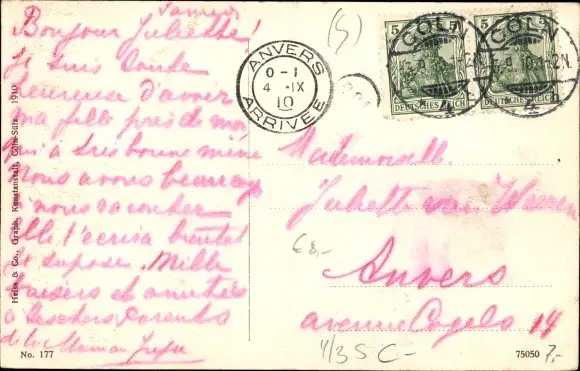 Samedi
Bonjour Juliette!
Je suis toute
heureuse d'avoir
ma fille près de moi
qui a très bonne mine
Nous avons beaucoup
à nous raconter
Elle t'ecrira bientôt
je suppose. Mille
baisers et amitiés
à tes chers parents
de la Maman
Heiss & Co., Graph. Kunstanstalt, Cöln-Sülz 1910
No. 177
ANVERS
0-1
4 IX
10
ARRIVÉE
5 5
DEUTSCHES REICH
CÖLN
5 5
DEUTSCHES REICH
CÖLN
Mademoiselle
Juliette van
Anvers
avenue Cogels 14
75050